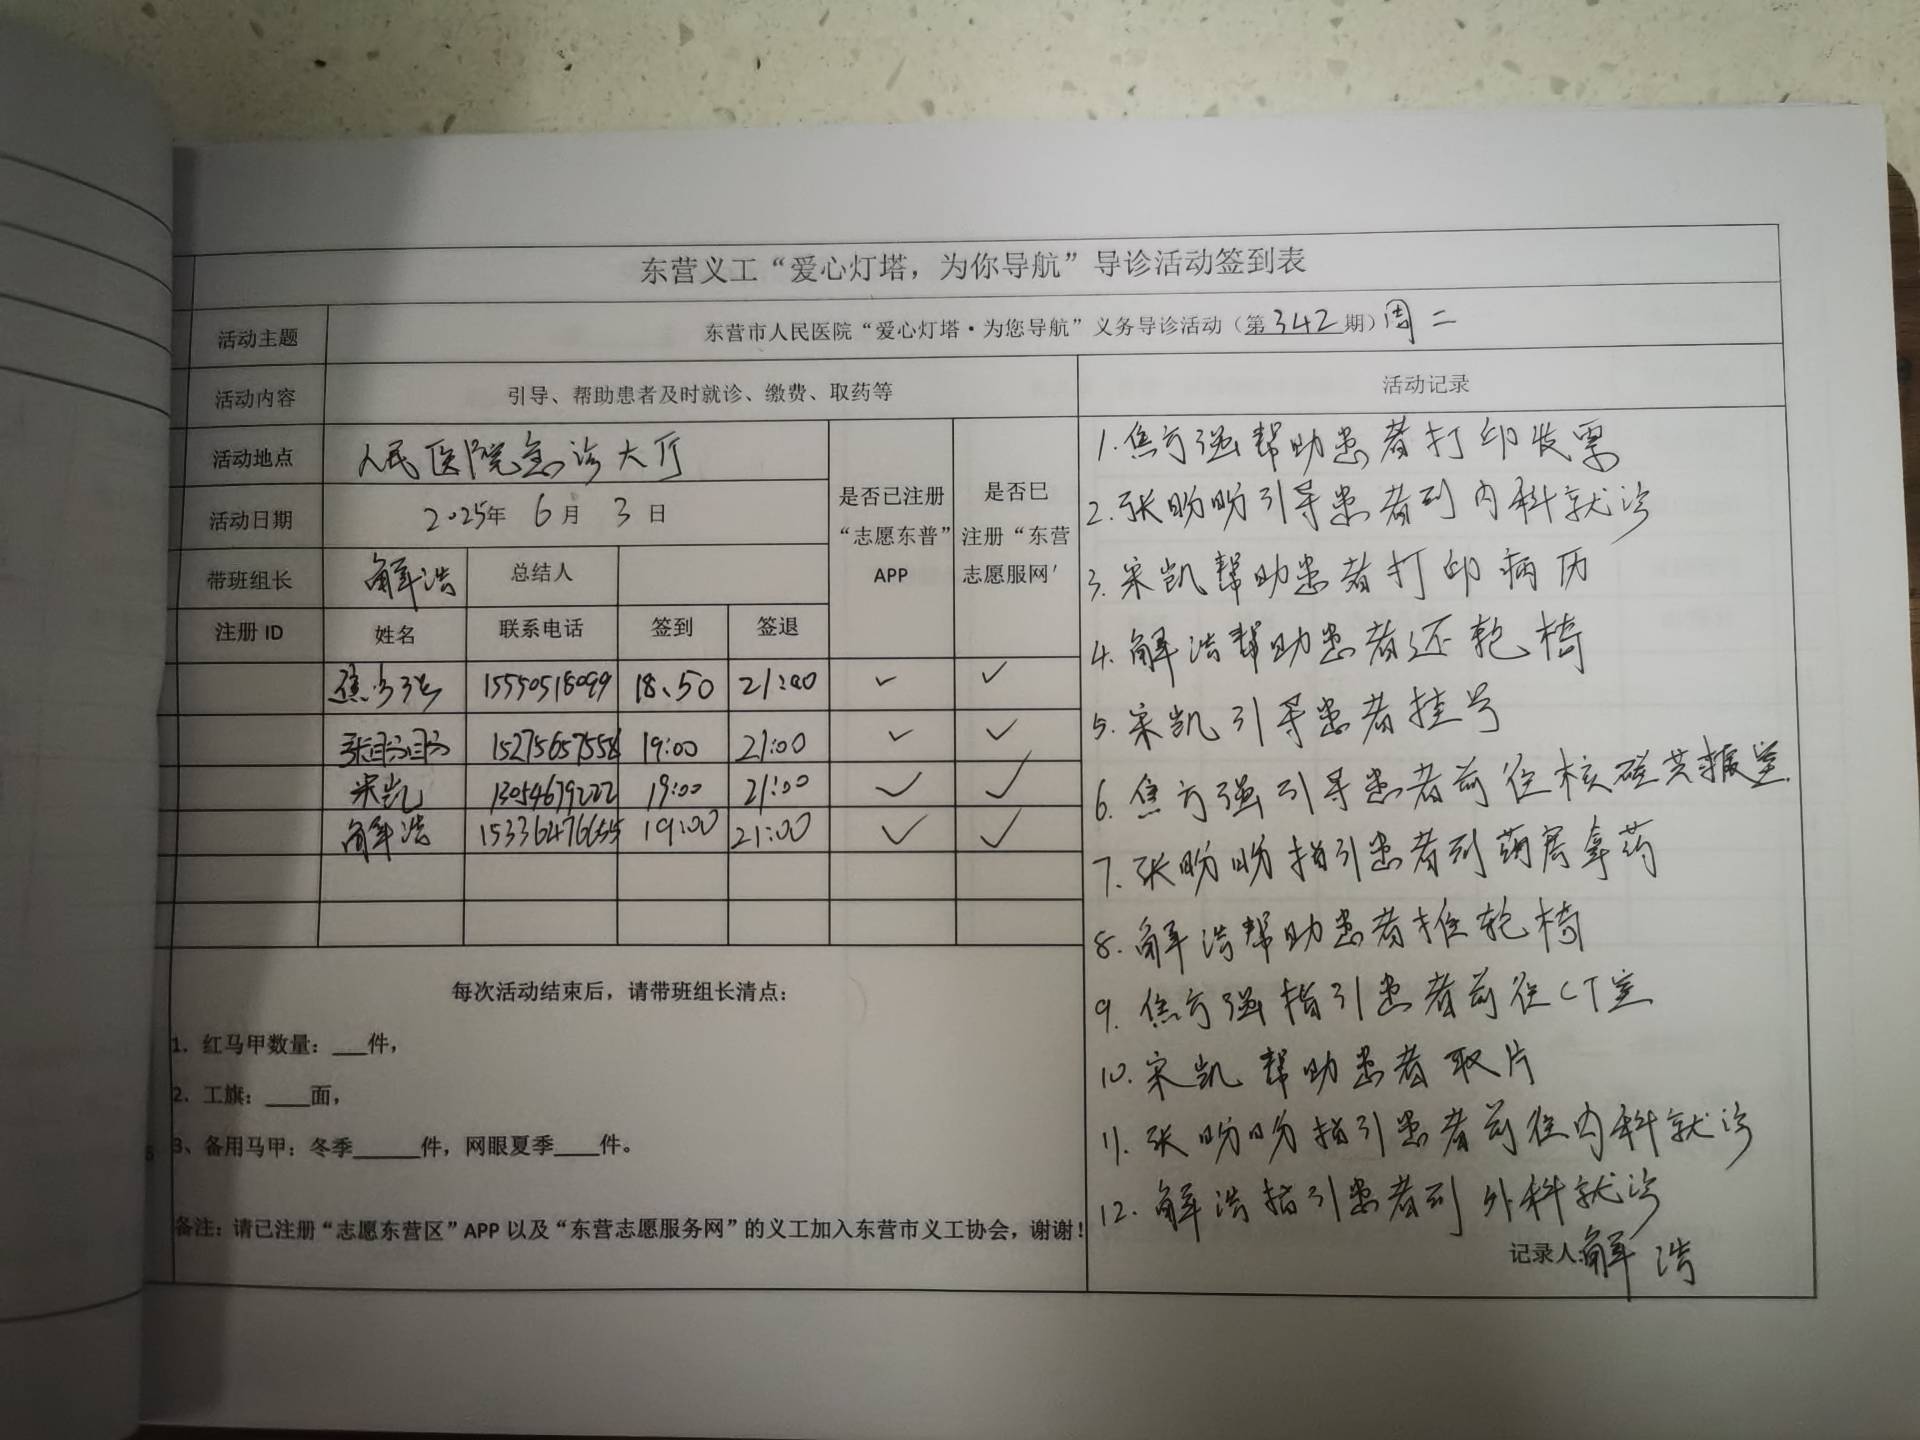 东营义工“爱心灯塔，为你导航”导诊活动签到表
活动主题 东营市人民医院“爱心灯塔·为您导航”义务导诊活动（第342期）周二
活动内容 引导、帮助患者及时就诊、缴费、取药等
活动地点 人民医院急诊大厅
活动日期 2025年 6月 3日
带班组长 解浩 总结人
是否已注册
“志愿东普”
APP
是否已
注册“东营
志愿服网'
注册 ID 姓名 联系电话 签到 签退
焦方强 15550518099 18:50 21:00 ✓ ✓
张盼盼 15275657558 19:00 21:00 ✓ ✓
宋凯 13054679222 19:00 21:00 ✓ ✓
解浩 15336476655 19:00 21:00 ✓ ✓
每次活动结束后，请带班组长清点：
1. 红马甲数量：___件，
2. 工旗：____面，
3、备用马甲：冬季______件，网眼夏季____件。
备注：请已注册“志愿东营区”APP 以及“东营志愿服务网”的义工加入东营市义工协会，谢谢！
活动记录
1. 焦方强帮助患者打印发票
2. 张盼盼引导患者到内科就诊
3. 宋凯帮助患者打印病历
4. 解浩帮助患者还轮椅
5. 宋凯引导患者挂号
6. 焦方强引导患者前往核磁共振室.
7. 张盼盼指引患者到药房拿药
8. 解浩帮助患者推轮椅
9. 焦方强指引患者前往CT室
10. 宋凯帮助患者取片
11. 张盼盼指引患者前往内科就诊
12. 解浩指引患者到外科就诊
记录人：解浩